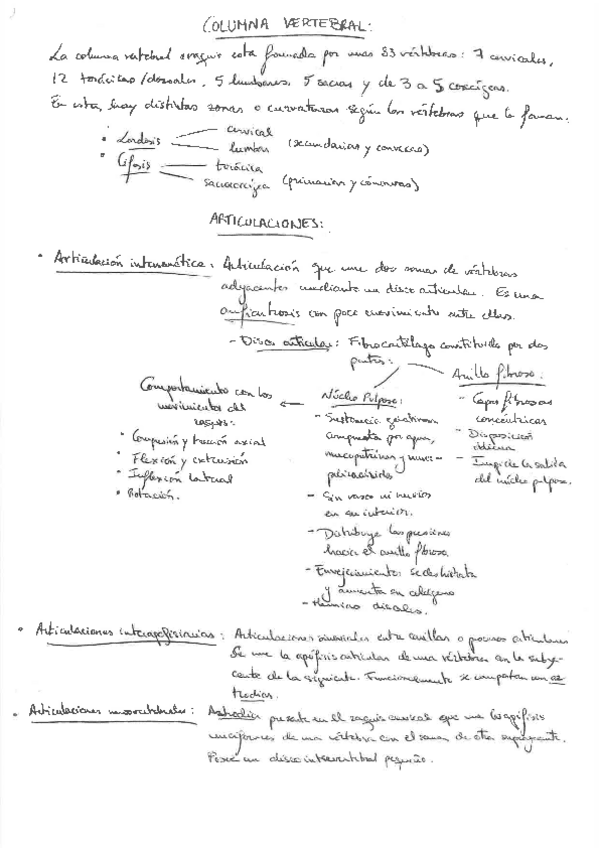 COLUMNA VERTEBRAL:
La columna vertebral o raquis está formada por unas 33 vértebras: 7 cervicales,
12 torácicas/dorsales, 5 lumbares, 5 sacras y de 3 a 5 coxígeas.
En esta, hay distintas zonas o curvaturas según las vértebras que la forman:
• Lordosis cervical
lumbar (secundarias y convexas)
• Cifosis torácica
sacrocoxígea (primarias y cóncavas)
ARTICULACIONES:
• Articulación intersomática: Articulación que une dos somas de vértebras
adyacentes mediante un disco articular. Es una
anfiartrosis con poco movimiento entre ellas.
- Disco articular: Fibrocartílago constituido por dos
partes:
Anillo fibroso:
- Capas fibrosas
concéntricas
- Disposición
oblicua
- Impide la salida
del núcleo pulposo.
Núcleo Pulposo:
- Sustancia gelatinosa
compuesta por agua,
mucoproteínas y muco-
polisacáridos
- Sin vasos ni nervios
en su interior.
- Distribuye las presiones
hacia el anillo fibroso.
- Envejecimiento: se deshidrata
y aumenta su colágeno
- Hernias discales.
Comportamiento con los
movimientos del
raquis:
• Compresión y tracción axial
• Flexión y extensión
• Inflexión lateral
• Rotación.
• Articulaciones interapofisiarias: Articulaciones sinoviales entre carillas o procesos articulares
Se une la apófisis articular de una vértebra con la subya-
cente de la siguiente. Funcionalmente se comportan como ar
trodias.
• Articulaciones uncovertebrales: Artrodia presente en el raquis cervical que une las apófisis
unciformes de una vértebra con el soma de otra suprayacente.
Posee un disco intervertebral pequeño.